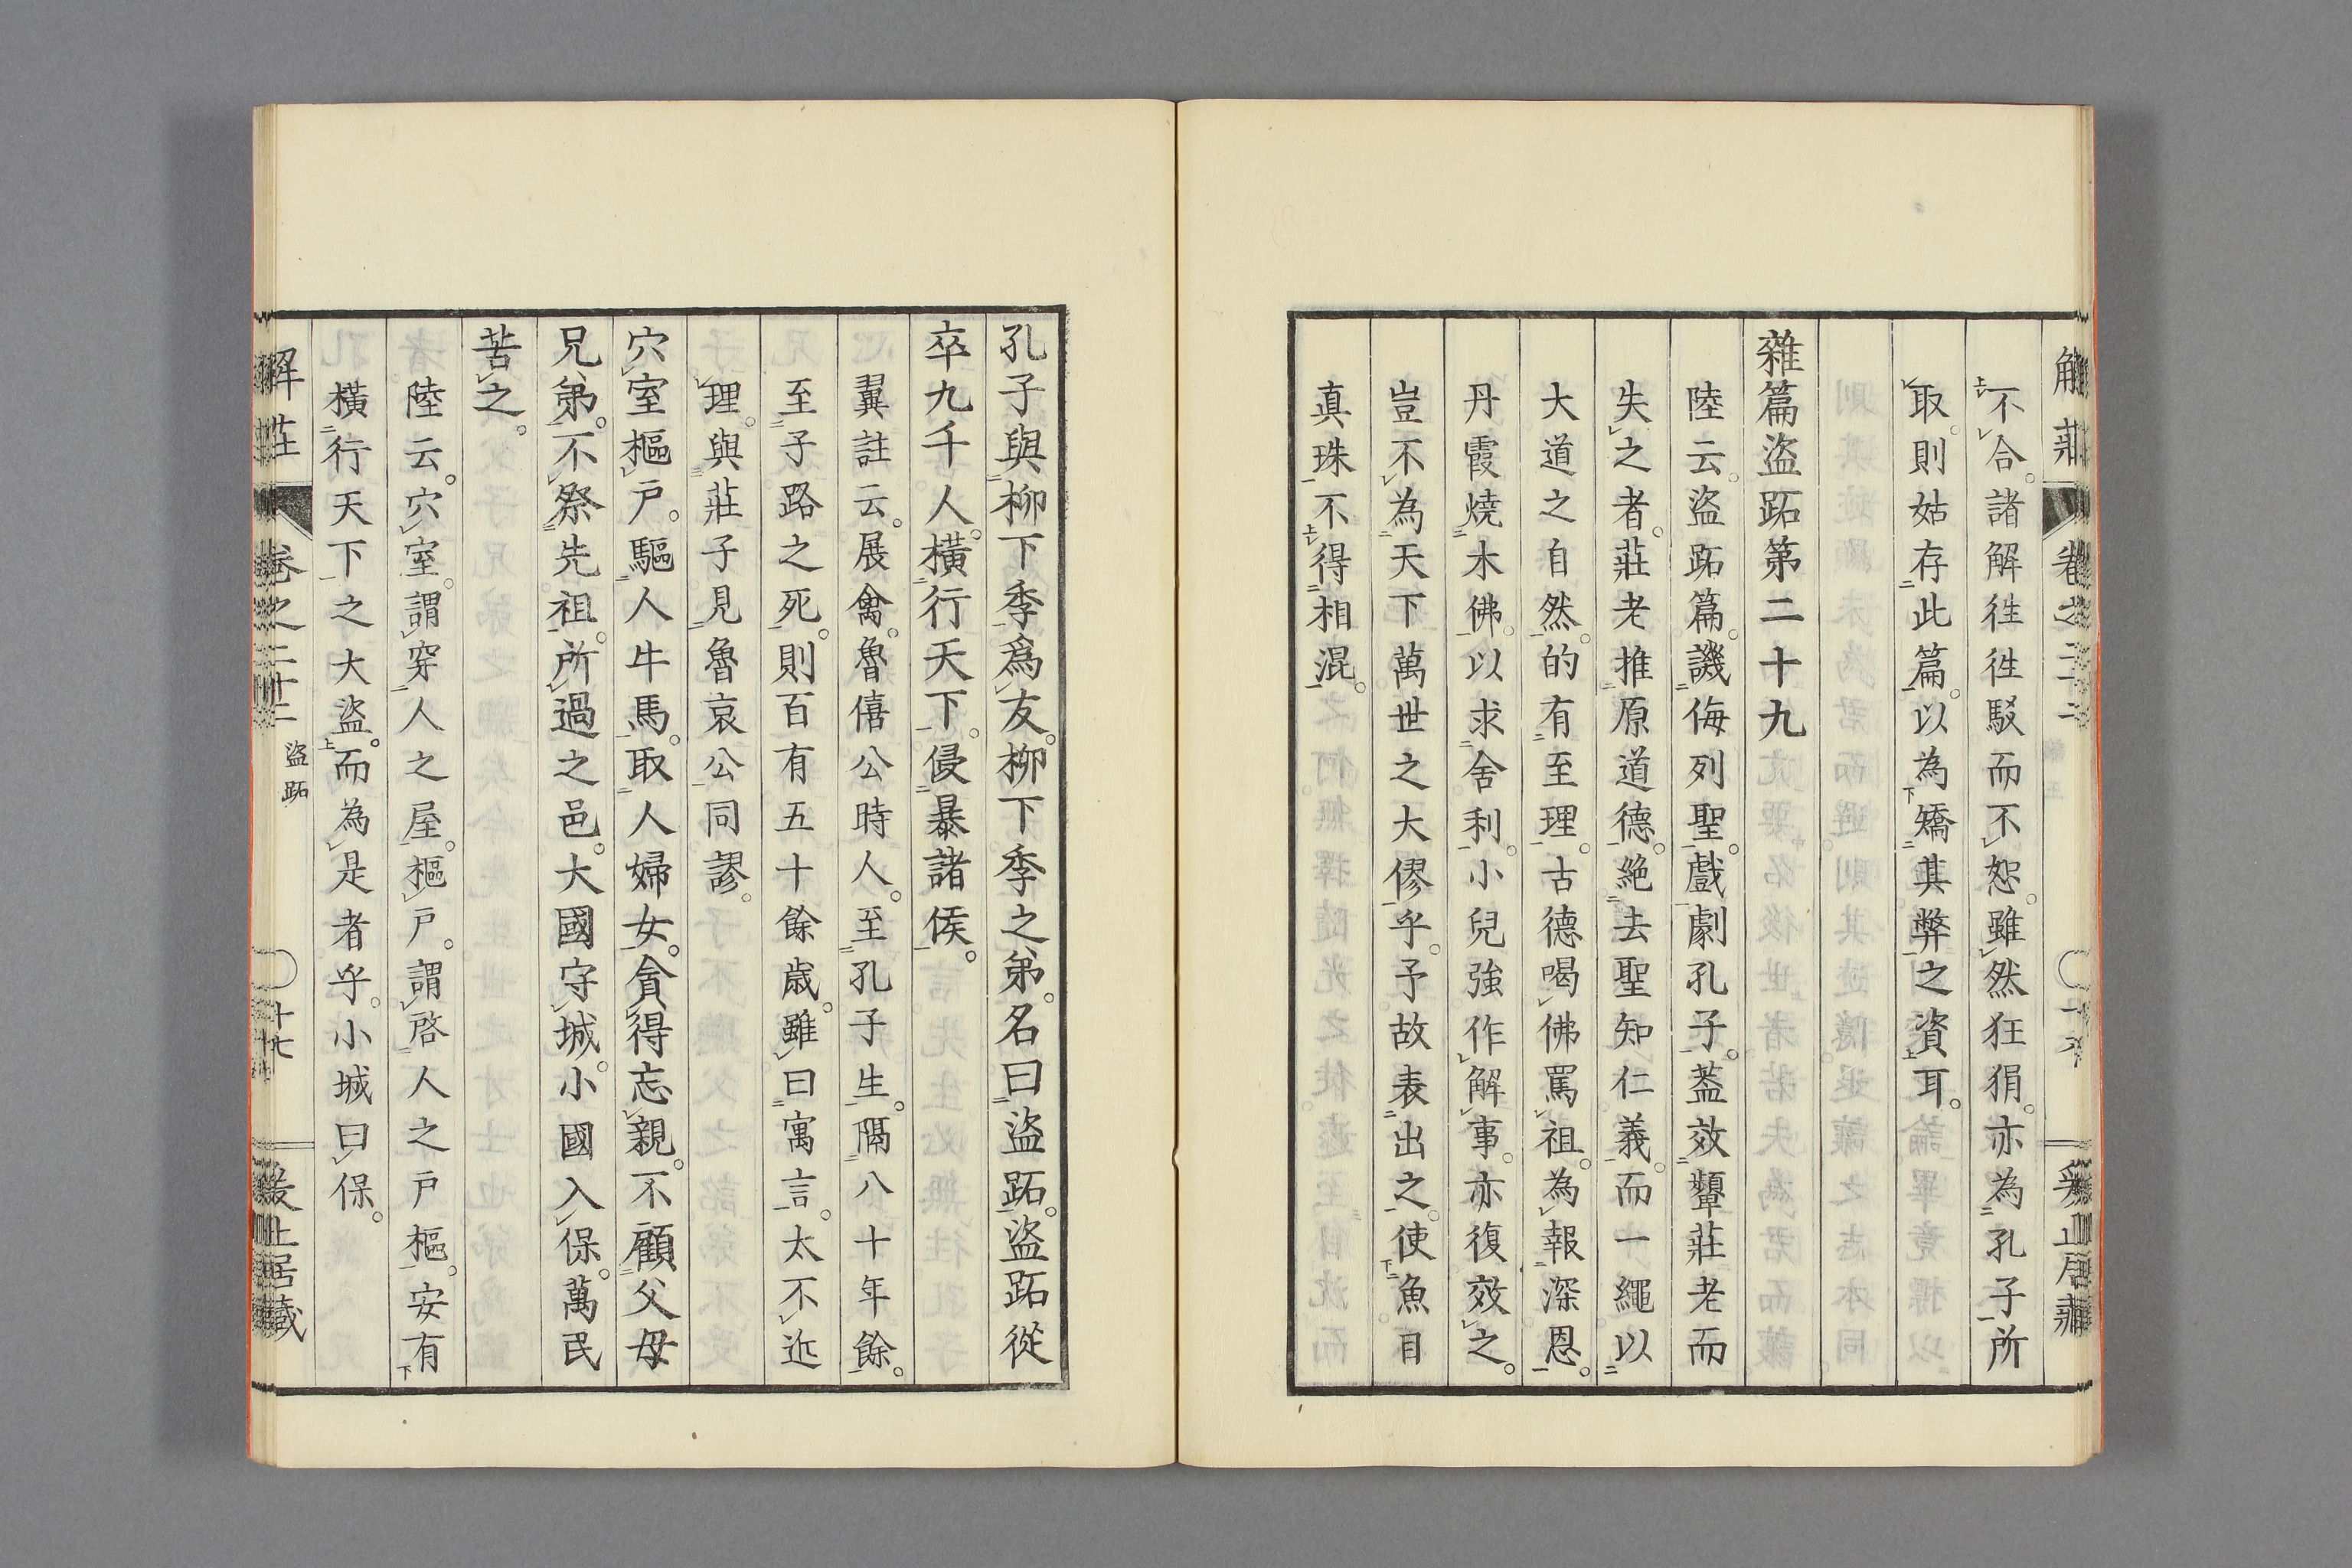 不合。諸解徃徃駁而不恕。雖然狂狷。亦為孔子所
取。則姑存此篇。以為矯其弊之資耳。
雜篇盜跖第二十九
陸云。盜跖篇。譏侮列聖。戲劇孔子。蓋效顰莊老而
失之者。莊老推原道德。絶去聖知仁義。而一繩以
大道之自然。的有至理。古德喝佛罵祖。為報深恩。
丹霞燒木佛。以求舍利。小兒強作解事。亦復效之。
豈不為天下萬世之大僇乎。予故表出之。使魚目
真珠不得相混。
孔子與柳下季爲友。柳下季之弟。名曰盜跖。盜跖從
卒九千人。橫行天下。侵暴諸侯。
翼註云。展禽。魯僖公時人。至孔子生。隔八十年餘。
至子路之死。則百有五十餘歳。雖曰寓言。太不近
理。與莊子見魯哀公同謬。
穴室樞戸。驅人牛馬。取人婦女。貪得忘親。不顧父母
兄弟。不祭先祖。所過之邑。大國守城。小國入保。萬民
苦之。
陸云。穴室。謂穿人之屋。樞戸。謂啓人之戸樞。安有
橫行天下之大盜。而為是者乎。小城曰保。
解莊
卷之二十二
盜跖
十七